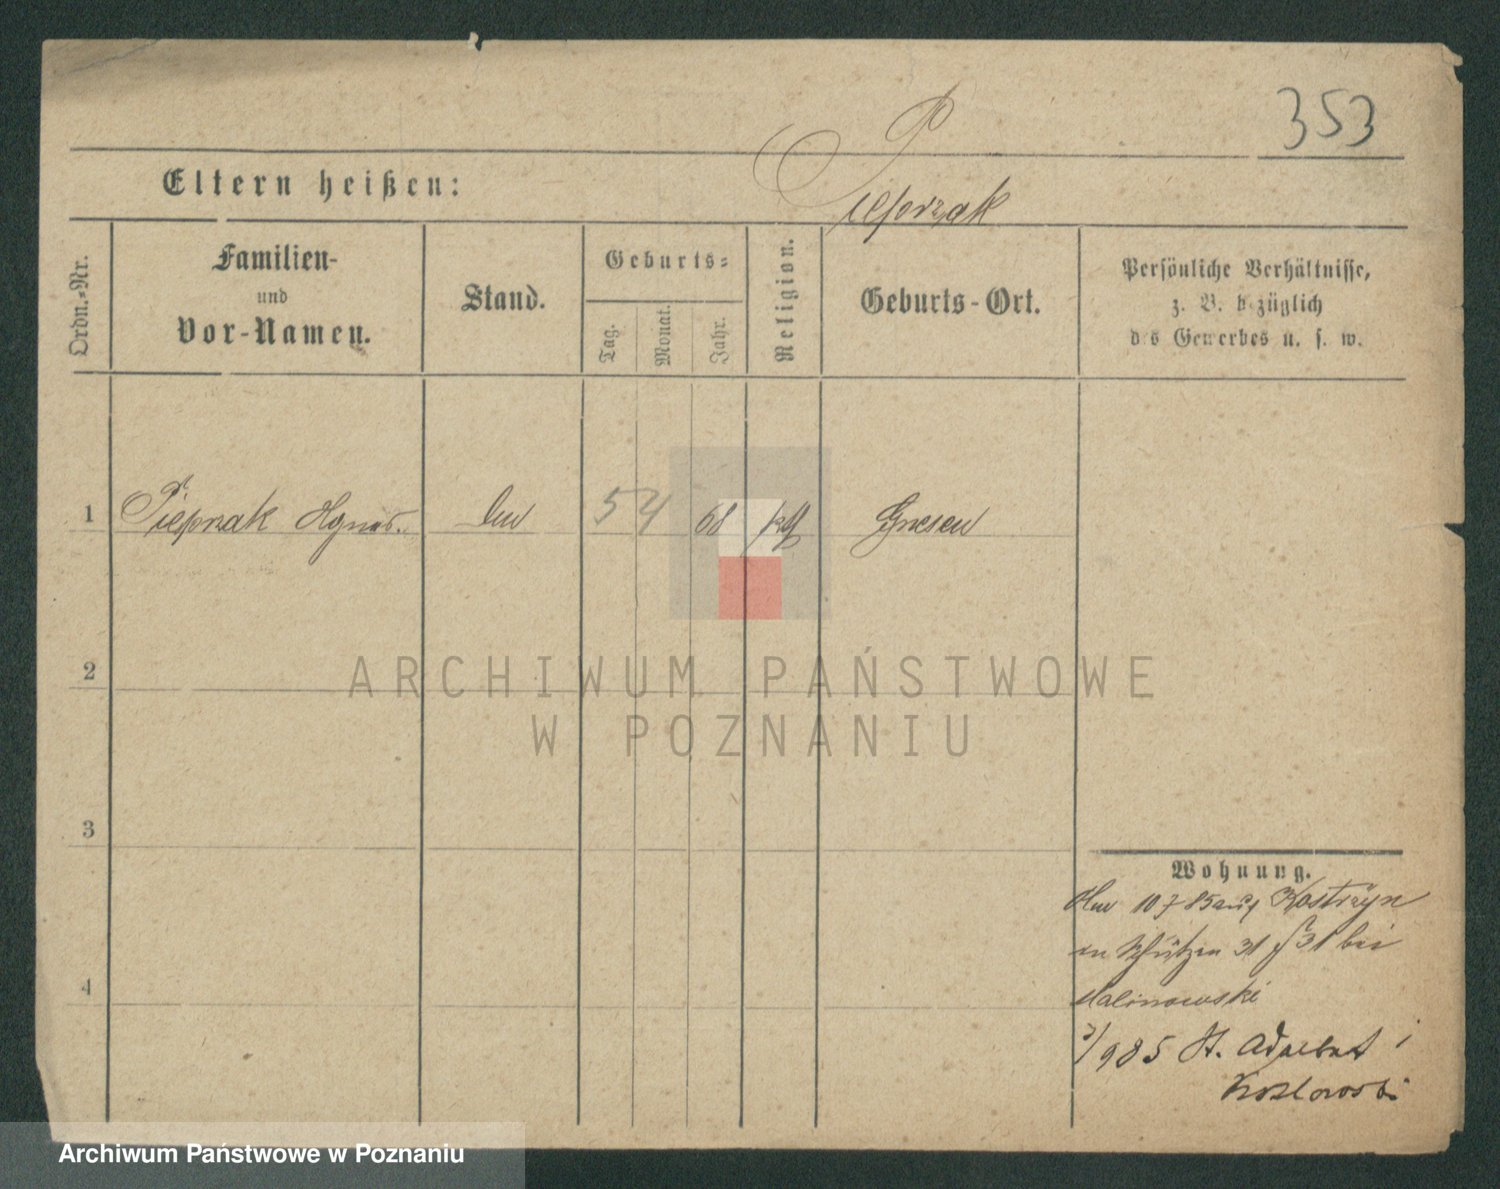 353
Eltern heißen:
Pieprzak
Ordn.-Nr.
Familien-
und
Vor-Namen.
Stand.
Geburts-
Tag.
Monat.
Jahr.
Religion.
Geburts-Ort.
Persönliche Verhältnisse,
z. B. bezüglich
des Gewerbes u. s. w.
1 Pieprzak Agnes. 5 4 68 Gnesen
2
ARCHIWUM PAŃSTWOWE
W POZNANIU
3
4
Wohnung.
10 7 85 aus Kostrzyn
Schützen 31 bei
Malinowski
3/9 85 St. Adalbert 1
Kozlowski
Archiwum Państwowe w Poznaniu